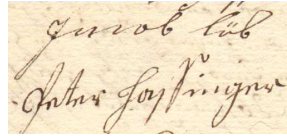 Jacob Löb
Peter Hassinger